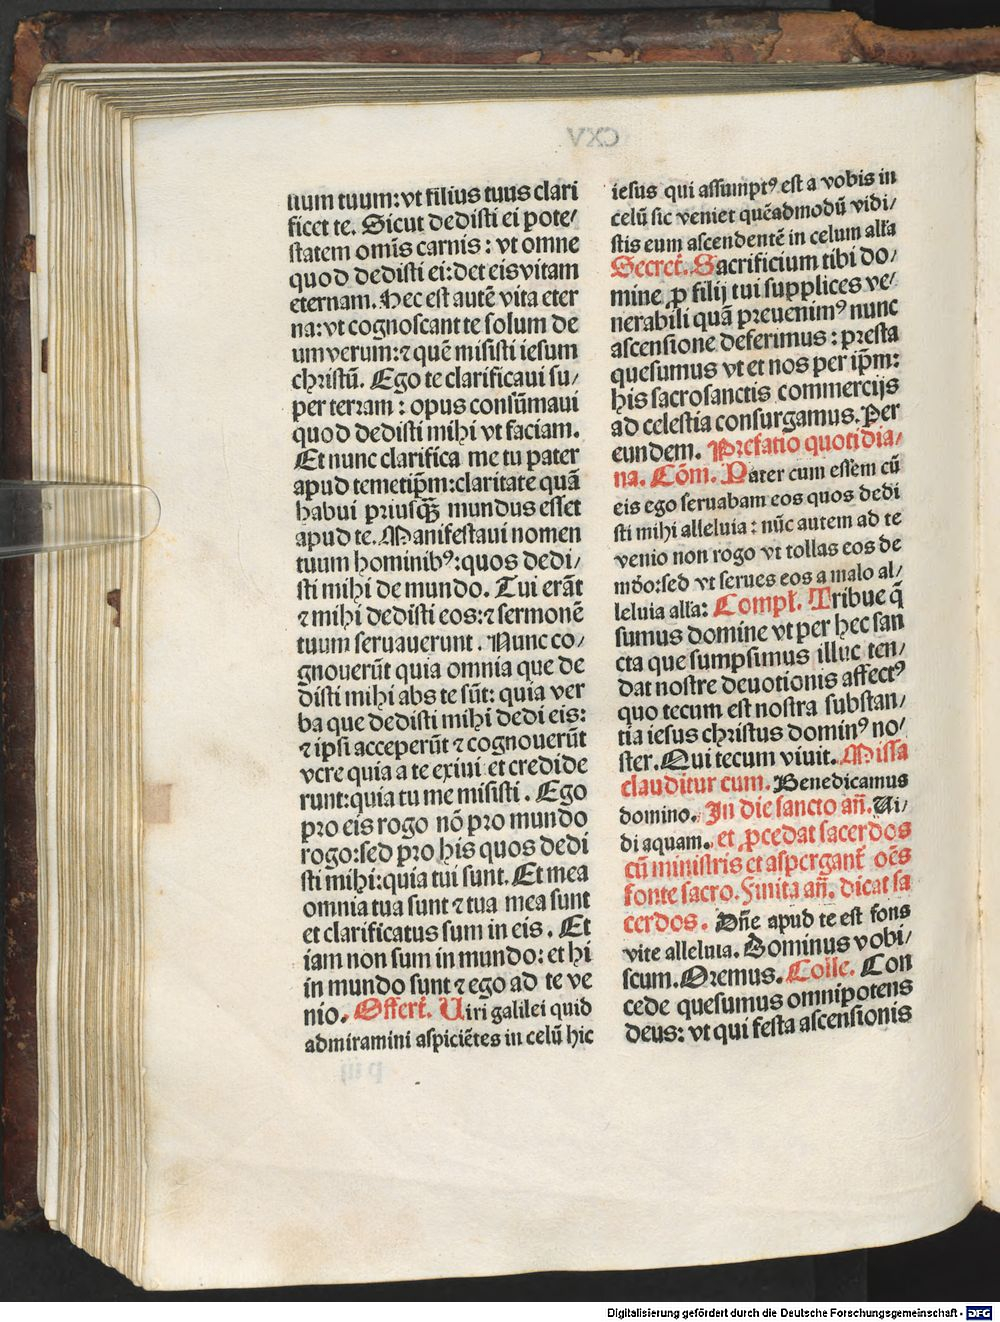 CXV
uum tuum: vt filius tuus clari
ficet te. Sicut dedisti ei pote/
statem om̄is carnis: vt omne
quod dedisti ei: det eis vitam
eternam. Hec est autē vita eter
na: vt cognoscant te solum de
um verum: ⁊ quē misisti iesum
christū. Ego te clarificaui su/
per terram: opus consūmaui
quod dedisti mihi vt faciam.
Et nunc clarifica me tu pater
apud temetip̄m: claritate quā
habui priusq̄ȝ mundus esset
apud te. Manifestaui nomen
tuum hominibꝰ: quos dedi/
sti mihi de mundo. Tui erāt
⁊ mihi dedisti eos: ⁊ sermonē
tuum seruauerunt. Nunc co/
gnouerūt quia omnia que de
disti mihi abs te sūt: quia ver
ba que dedisti mihi dedi eis:
⁊ ipsi acceperūt ⁊ cognouerūt
vere quia a te exiui et credide
runt: quia tu me misisti. Ego
pro eis rogo nō pro mundo
rogo: sed pro his quos dedi
sti mihi: quia tui sunt. Et mea
omnia tua sunt ⁊ tua mea sunt
et clarificatus sum in eis. Et
iam non sum in mundo: et hi
in mundo sunt ⁊ ego ad te ve
nio. Offert̄. Uiri galilei quid
admiramini aspiciētes in celū hic
iesus qui assumptꝰ est a vobis in
celū sic veniet quēadmodū vidi/
stis eum ascendentē in celum all'a
Secret̄. Sacrificium tibi do/
mine ꝓ filij tui supplices ve/
nerabili quā preuenimꝰ nunc
ascensione deferimus: presta
quesumus vt et nos per ip̄m:
his sacrosanctis commercijs
ad celestia consurgamus. Per
eundem. Prefatio quotidia/
na. Cōm. Pater cum essem cū
eis ego seruabam eos quos dedi
sti mihi alleluia: nūc autem ad te
venio non rogo vt tollas eos de
mōo: sed vt serues eos a malo al/
leluia all'a: Compl̄. Tribue q̄
sumus domine vt per hec san
cta que sumpsimus illuc ten/
dat nostre deuotionis affectꝰ
quo tecum est nostra substan/
tia iesus christus dominꝰ no/
ster. Qui tecum viuit. Missa
clauditur cum. Benedicamus
domino. In die sancto añ. Ui/
di aquam. et ꝓcedat sacerdos
cū ministris et aspergant̄ oēs
fonte sacro. Finita añ. dicat sa
cerdos. Dñe apud te est fons
vite alleluia. Dominus vobi/
scum. Oremus. Colle. Con
cede quesumus omnipotens
deus: vt qui festa ascensionis
p iij
Digitalisierung gefördert durch die Deutsche Forschungsgemeinschaft - DFG